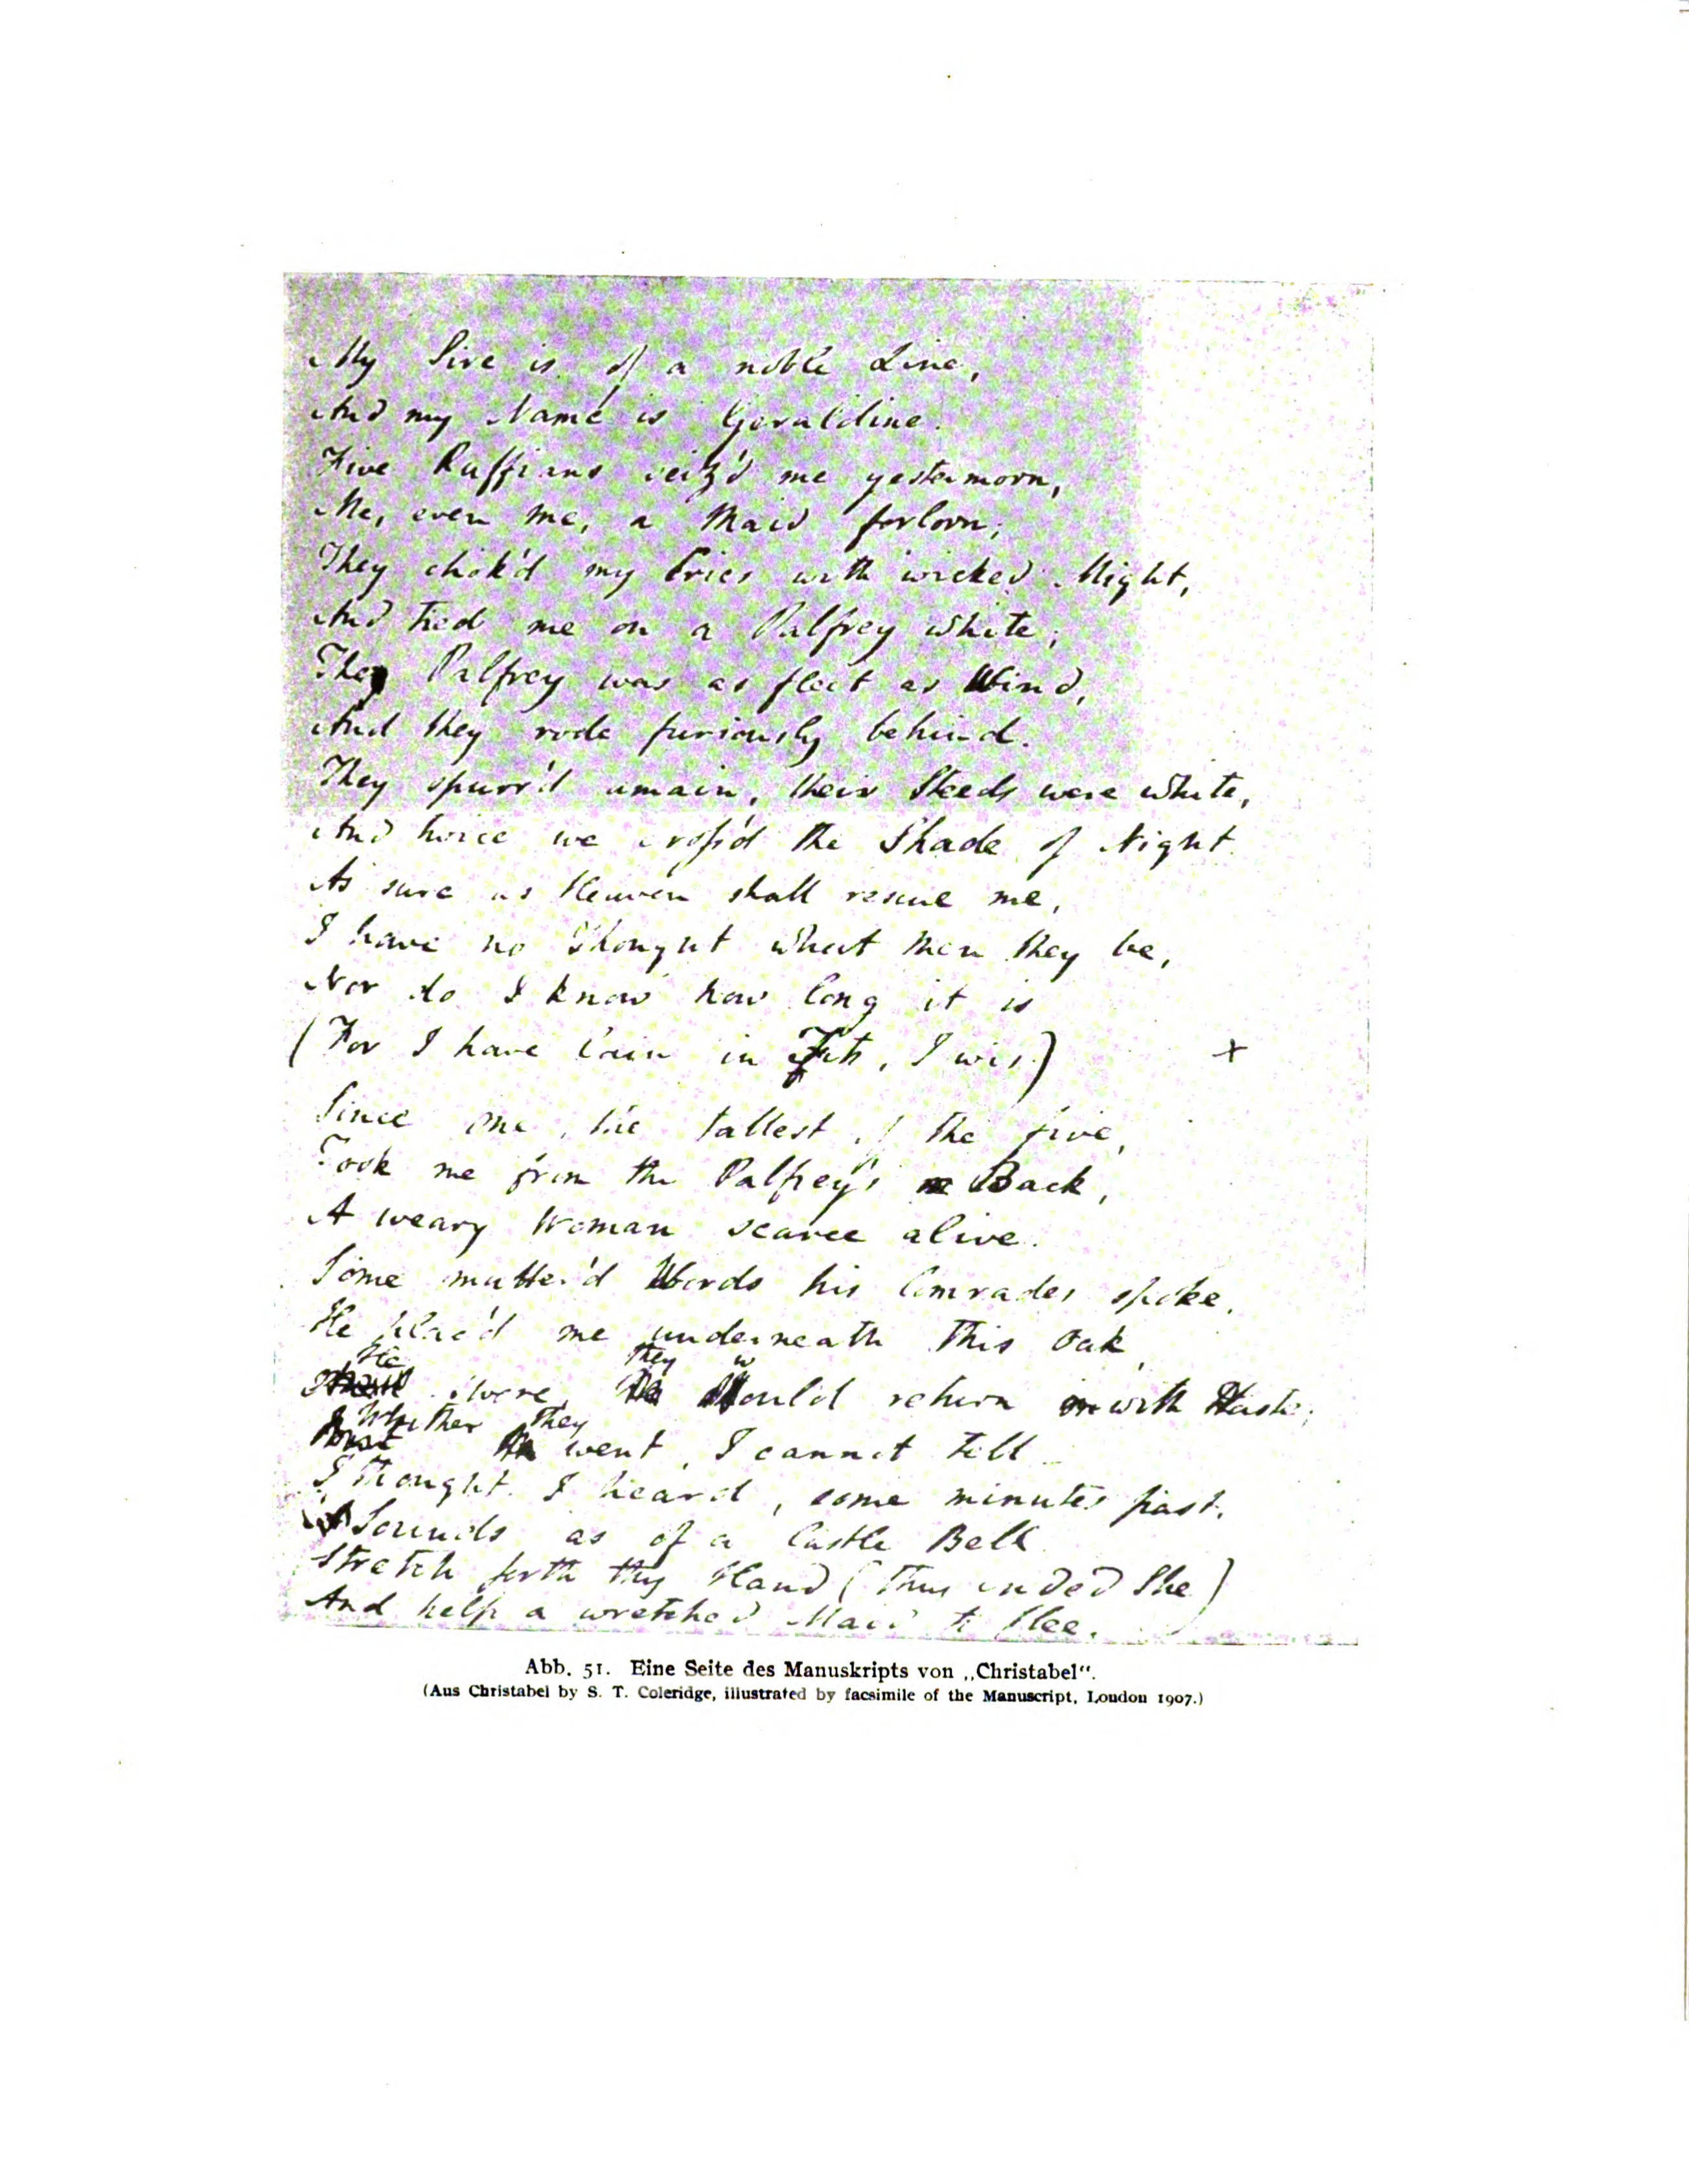 My Sire is of a noble Line,
And my Name is Geraldine.
Five Ruffians seiz'd me yestermorn,
Me, even me, a Maid forlorn;
They chok'd my Cries with wicked Might,
And tied me on a Palfrey white;
The Palfrey was as fleet as Wind,
And they rode furiously behind.
They spurr'd amain, their Steeds were white,
And twice we cross'd the Shade of Night.
As sure as Heaven shall rescue me,
I have no Thought what Men they be,
Nor do I know how long it is
(For I have lain in Fits, I wis) +
Since one, the tallest of the five,
Took me from the Palfrey's Back,
A weary Woman scarce alive.
Some mutter'd Words his Comrades spoke,
He plac'd me underneath this Oak,
He they w
swore, would return with Haste;
Whither they
went, I cannot tell
I thought I heard, some minutes past,
Sounds as of a Castle Bell.
Stretch forth thy Hand (thus ended She)
And help a wretched Maid to flee.
Abb. 51. Eine Seite des Manuskripts von „Christabel“.
(Aus Christabel by S. T. Coleridge, illustrated by facsimile of the Manuscript, London 1907.)